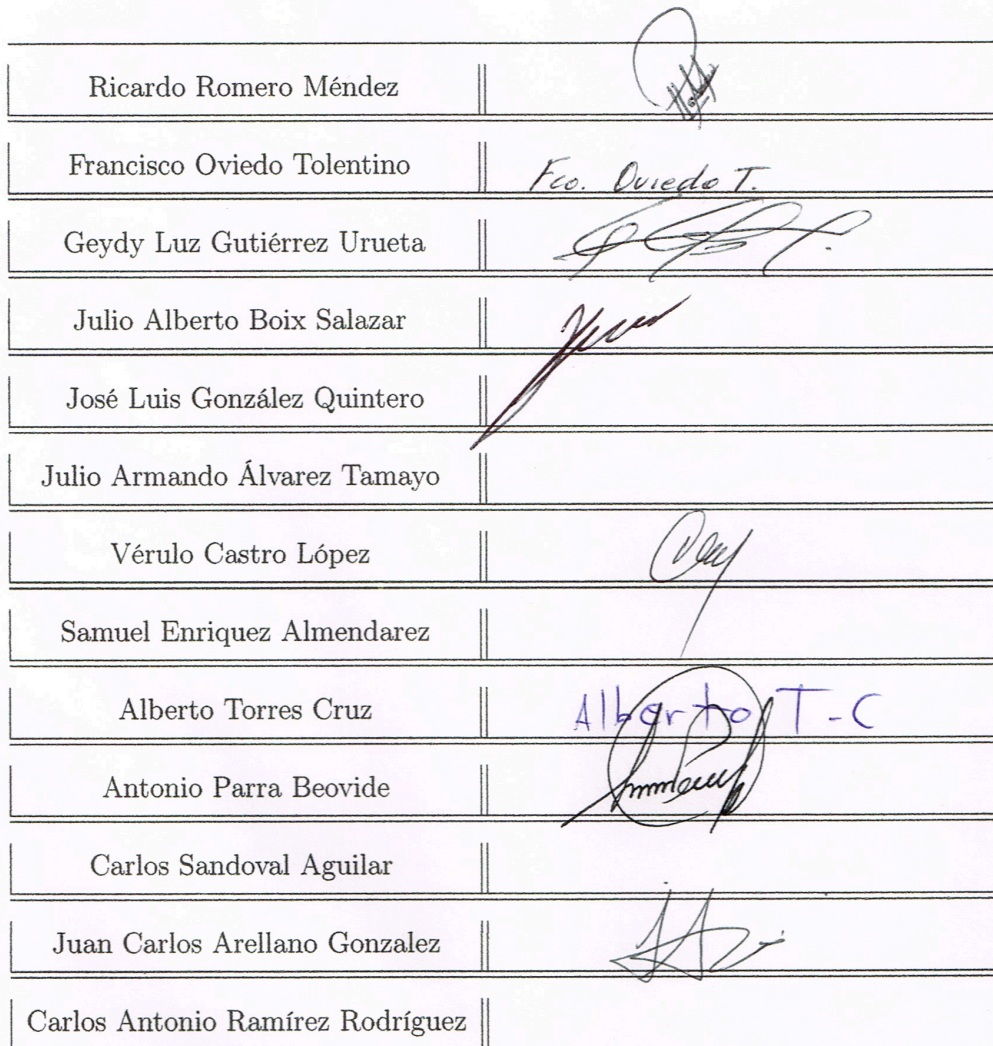 Ricardo Romero Méndez
Francisco Oviedo Tolentino Fco. Oviedo T.
Geydy Luz Gutiérrez Urueta
Julio Alberto Boix Salazar
José Luis González Quintero
Julio Armando Álvarez Tamayo
Vérulo Castro López
Samuel Enriquez Almendarez
Alberto Torres Cruz Alberto T-C
Antonio Parra Beovide
Carlos Sandoval Aguilar
Juan Carlos Arellano Gonzalez
Carlos Antonio Ramírez Rodríguez